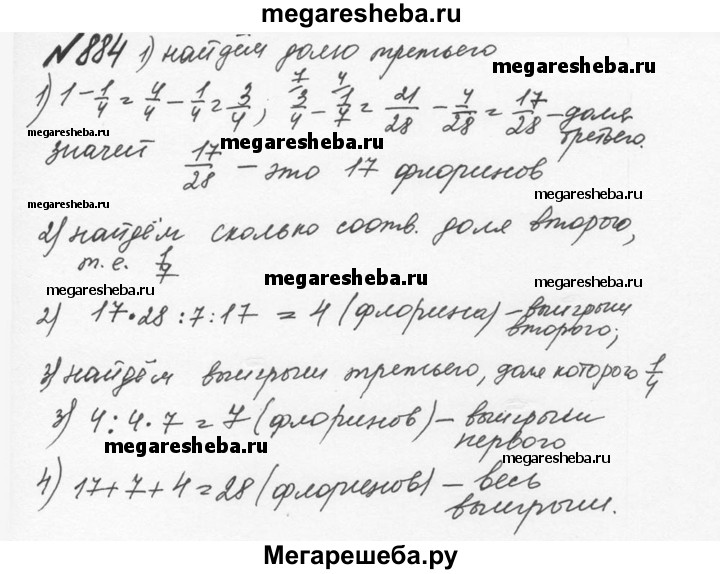 megaresheba.ru
№884 1) найдём долю третьего
1) 1 - 1/4 = 4/4 - 1/4 = 3/4; 3/4 - 1/7 = 21/28 - 4/28 = 17/28 - доля третьего.
megaresheba.ru megaresheba.ru
значит 17/28 - это 17 флоринов
megaresheba.ru megaresheba.ru
2) найдём сколько соотв. доля второго,
т.е. 1/7 megaresheba.ru
2) 17•28:7:17 = 4 (флорина) - выигрыш второго;
3) найдём выигрыш третьего, доля которого 1/4
3) 4:4•7 = 7 (флоринов) - выигрыш первого
megaresheba.ru megaresheba.ru
4) 17+7+4=28 (флоринов) - весь выигрыш.
Мегарешеба.ру